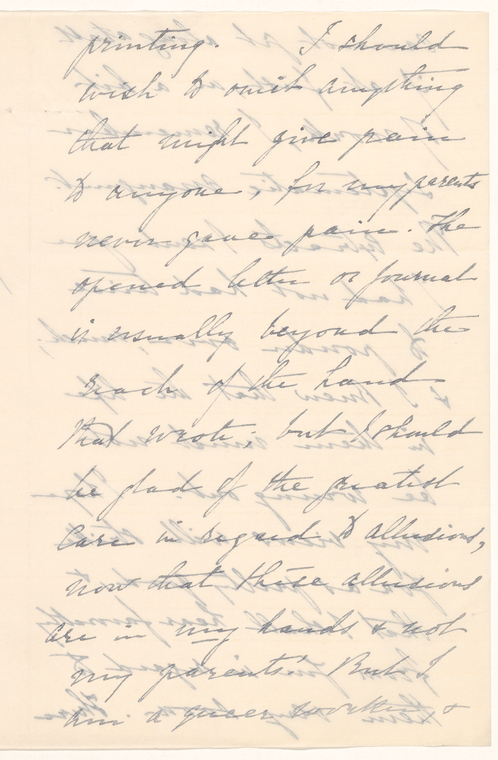 printing. I should
wish to omit anything
that might give pain
to anyone, for my parents
never gave pain. The
opened letter or journal
is usually beyond the
reach of the hand
that wrote; but I should
be glad of the greatest
care in regard to allusions,
now that these allusions
are in my hands & not
my parents'. But I
am a queer worker, &